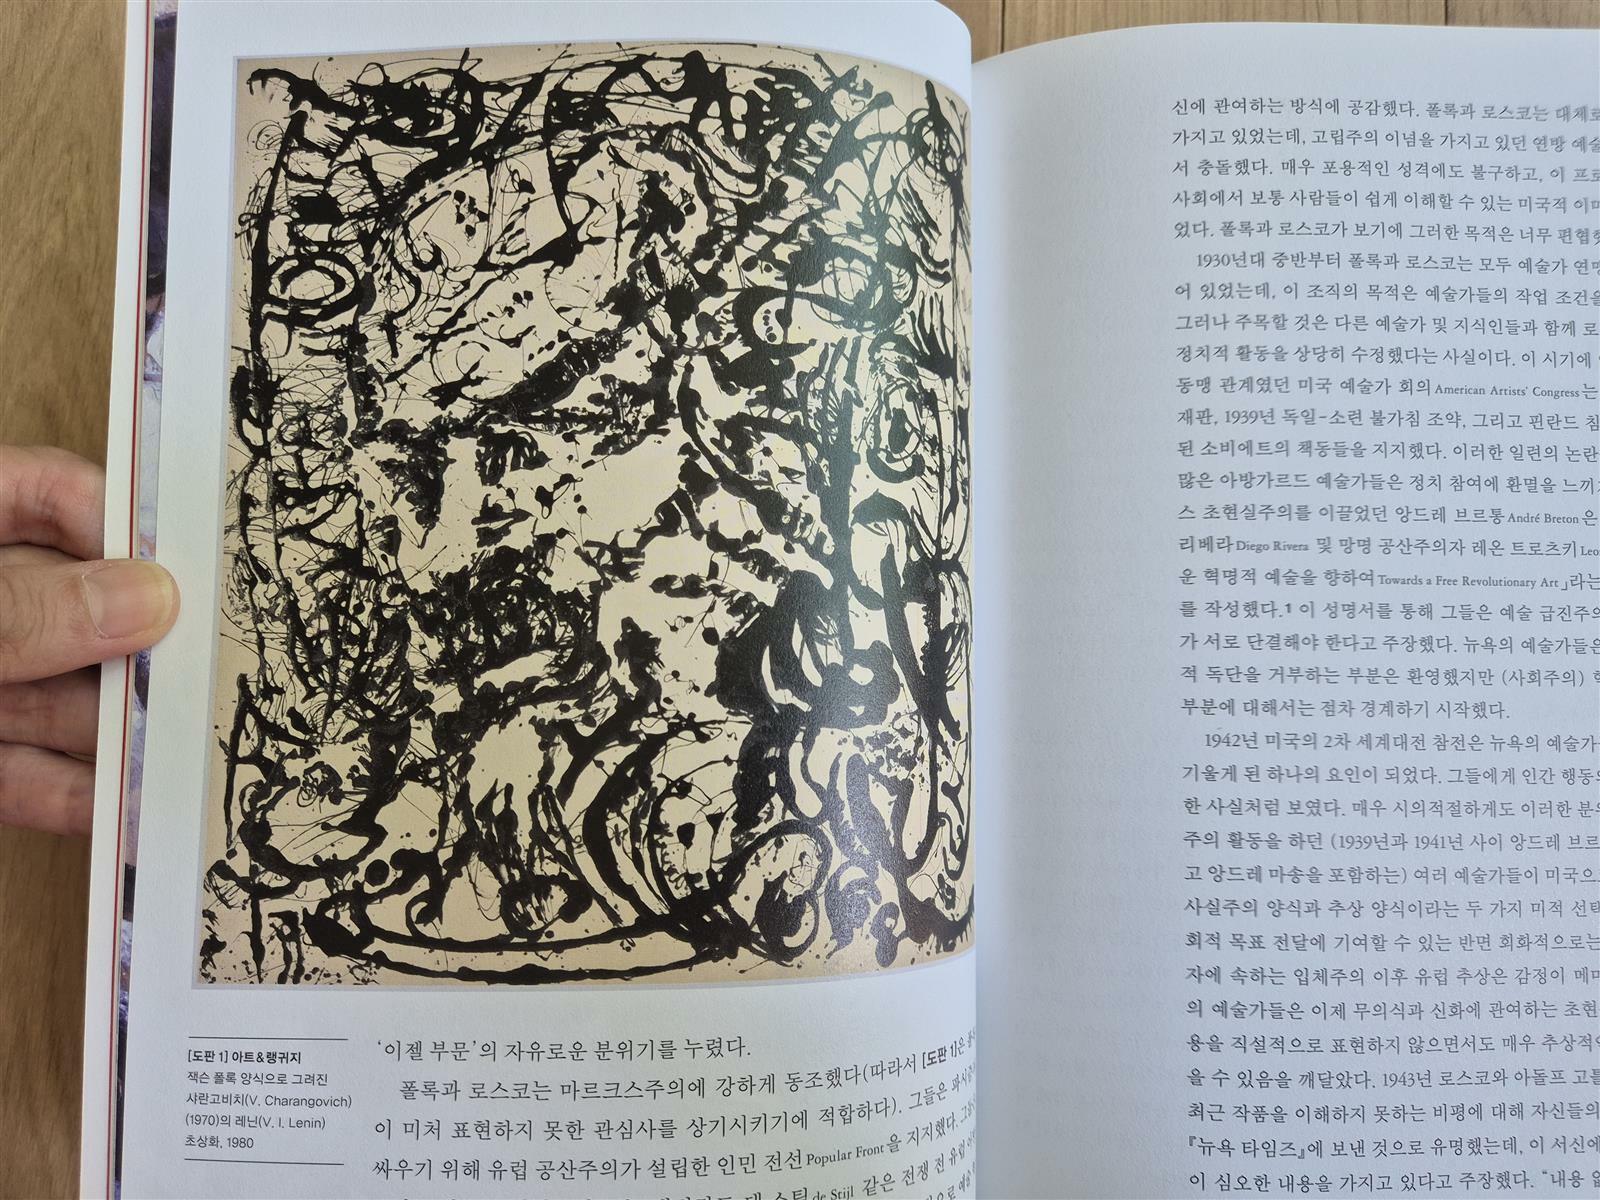 [도판 1] 아트&랭귀지
잭슨 폴록 양식으로 그려진
샤란고비치(V. Charangovich)
(1970)의 레닌(V. I. Lenin)
초상화, 1980
'이젤 부문'의 자유로운 분위기를 누렸다.
폴록과 로스코는 마르크스주의에 강하게 동조했다(따라서 [도판 1]은
이 미처 표현하지 못한 관심사를 상기시키기에 적합하다). 그들은
싸우기 위해 유럽 공산주의가 설립한 인민 전선 Popular Front을 지지했다.
de Stijl 같은 전쟁 전 유럽
신에 관여하는 방식에 공감했다. 폴록과 로스코는 대체로
가지고 있었는데, 고립주의 이념을 가지고 있던 연방 예술
서 충돌했다. 매우 포용적인 성격에도 불구하고, 이 프로
사회에서 보통 사람들이 쉽게 이해할 수 있는 미국적 이미
었다. 폴록과 로스코가 보기에 그러한 목적은 너무 편협
1930년대 중반부터 폴록과 로스코는 모두 예술가 연맹
어 있었는데, 이 조직의 목적은 예술가들의 작업 조건을
그러나 주목할 것은 다른 예술가 및 지식인들과 함께 로
정치적 활동을 상당히 수정했다는 사실이다. 이 시기에
동맹 관계였던 미국 예술가 회의 American Artists' Congress는
재판, 1939년 독일-소련 불가침 조약, 그리고 핀란드 침
된 소비에트의 책동들을 지지했다. 이러한 일련의 논란
많은 아방가르드 예술가들은 정치 참여에 환멸을 느끼
스 초현실주의를 이끌었던 앙드레 브르통 André Breton은
리베라 Diego Rivera 및 망명 공산주의자 레온 트로츠키 Leo
운 혁명적 예술을 향하여 Towards a Free Revolutionary Art」라는
를 작성했다.1 이 성명서를 통해 그들은 예술 급진주의
가 서로 단결해야 한다고 주장했다. 뉴욕의 예술가들은
적 독단을 거부하는 부분은 환영했지만 (사회주의)
부분에 대해서는 점차 경계하기 시작했다.
1942년 미국의 2차 세계대전 참전은 뉴욕의 예술가
기울게 된 하나의 요인이 되었다. 그들에게 인간 행동의
한 사실처럼 보였다. 매우 시의적절하게도 이러한 분위
주의 활동을 하던 (1939년과 1941년 사이 앙드레 브르
고 앙드레 마송을 포함하는) 여러 예술가들이 미국으로
사실주의 양식과 추상 양식이라는 두 가지 미적 선택
회적 목표 전달에 기여할 수 있는 반면 회화적으로는
자에 속하는 입체주의 이후 유럽 추상은 감정이 메마
의 예술가들은 이제 무의식과 신화에 관여하는 초현
용을 직설적으로 표현하지 않으면서도 매우 추상적인
을 수 있음을 깨달았다. 1943년 로스코와 아돌프 고틀
최근 작품을 이해하지 못하는 비평에 대해 자신들의
『뉴욕 타임즈』에 보낸 것으로 유명했는데, 이 서신에
이 심오한 내용을 가지고 있다고 주장했다. "내용 없